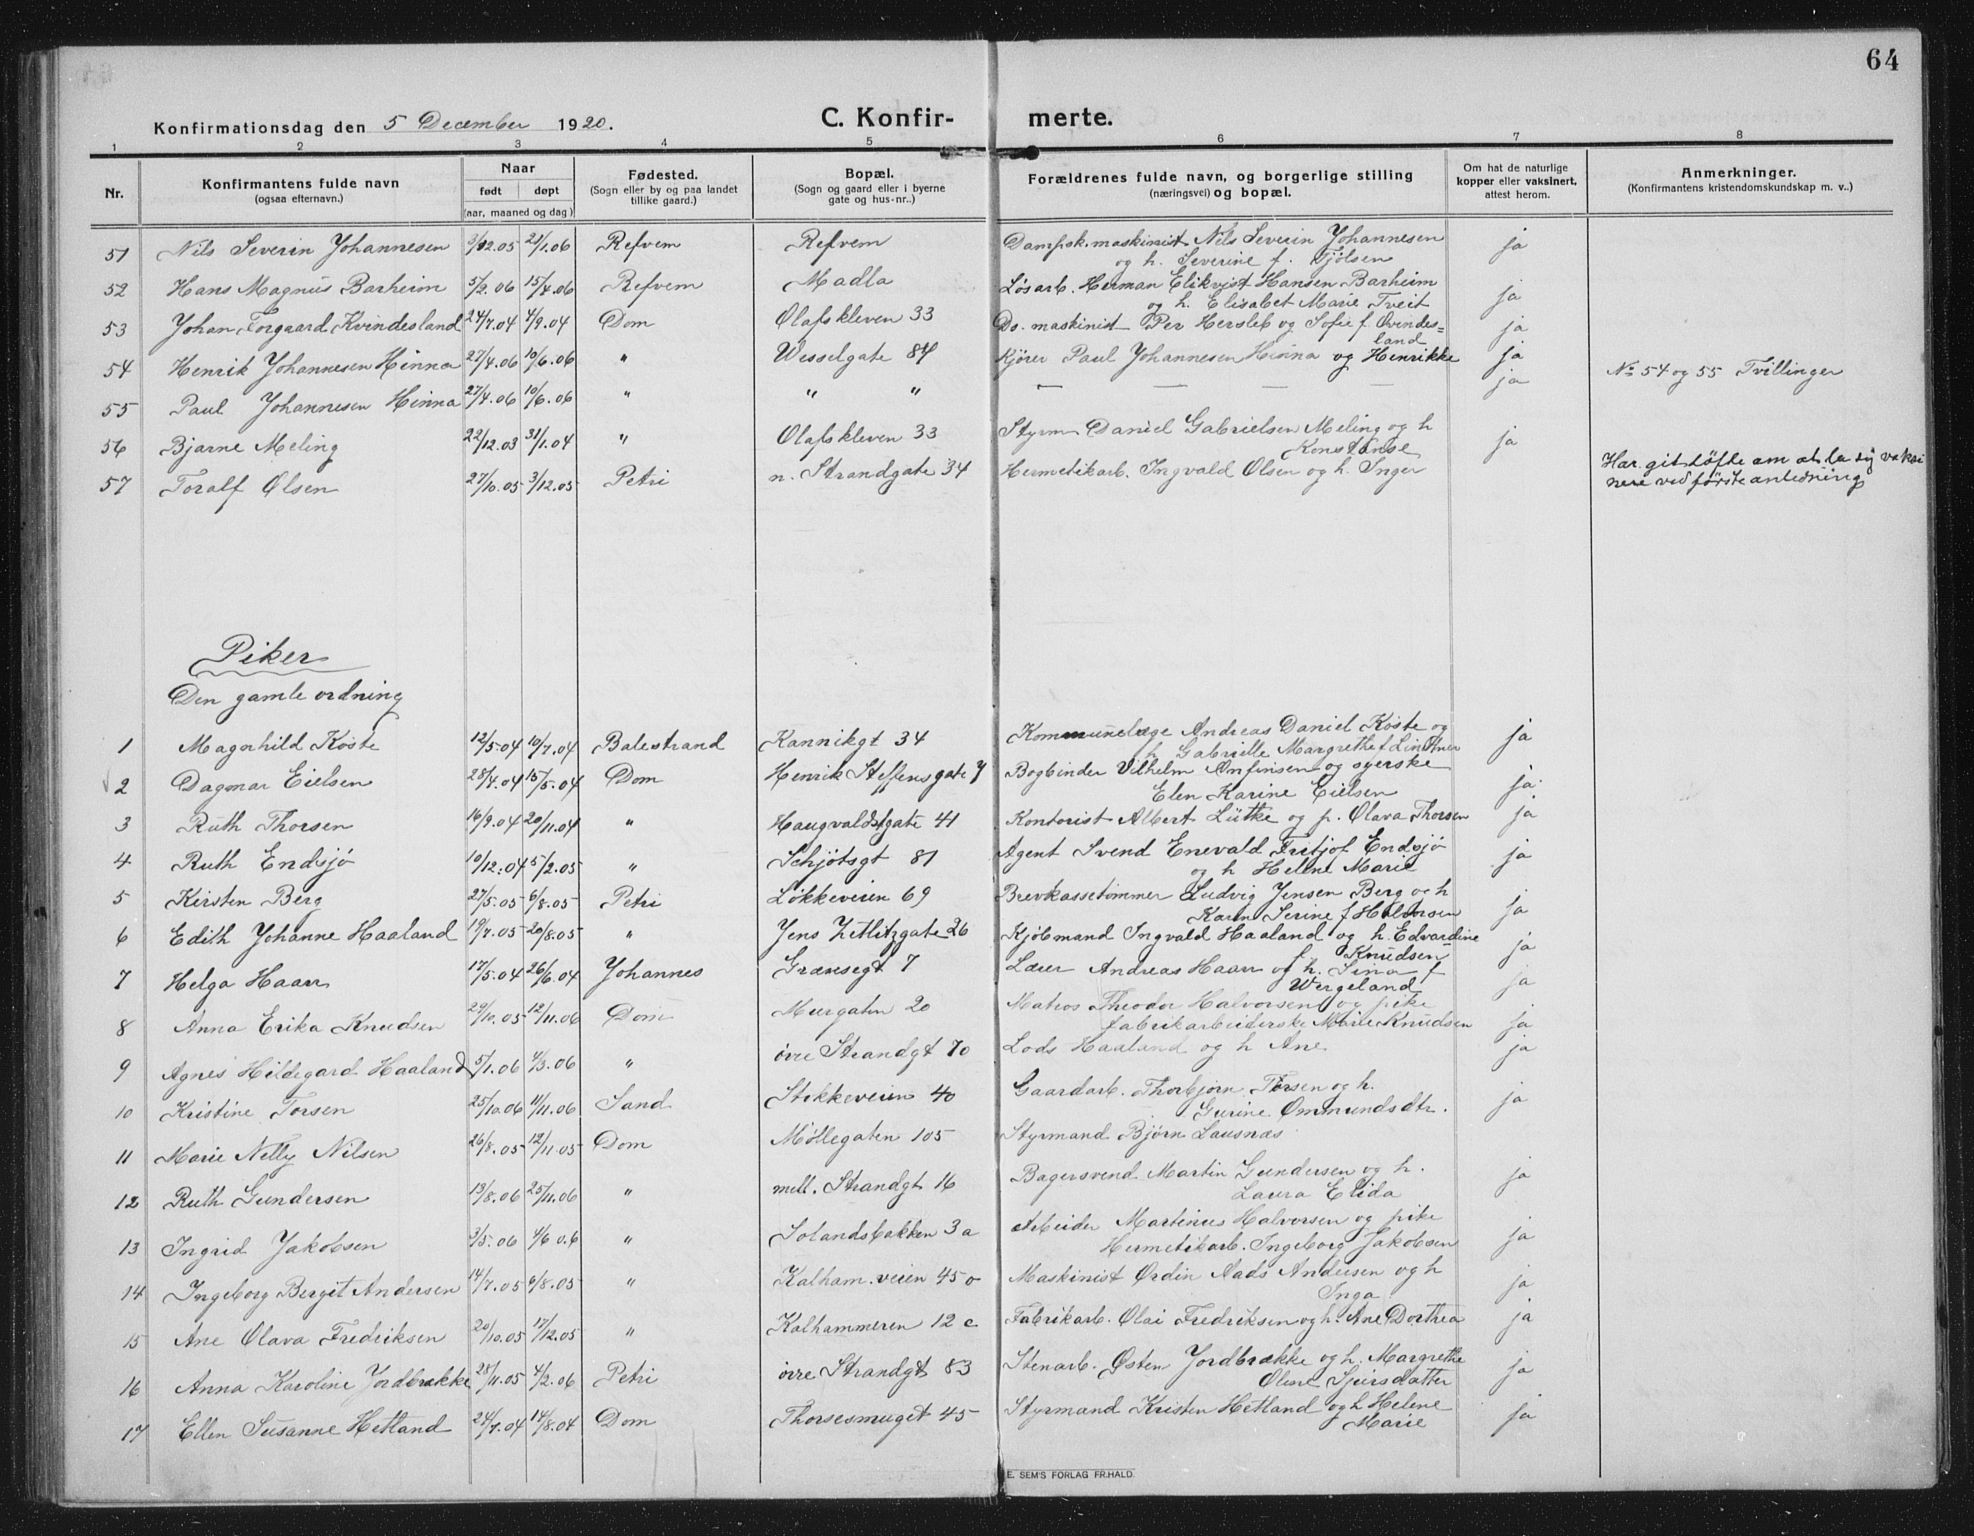 64
Konfirmationsdag den 5 December 1920. C. Konfir- merte.
1 2 3 4 5 6 7 8
Nr. Konfirmantens fulde navn (ogsaa efternavn.) Naar født døpt (aar, maaned og dag) Fødested. (Sogn eller by og paa landet tillike gaard.) Bopæl. (Sogn og gaard eller i byerne gate og hus-nr..) Forældrenes fulde navn, og borgerlige stilling (næringsvei) og bopæl. Om hat de naturlige kopper eller vaksinert, attest herom. Anmerkninger. (Konfirmantens kristendomskundskap m. v..)
51 Nils Severin Johannesen 9/12.05 21/1.06 Refvem Refvem Dampsk. maskinist Nils Severin Johannesen ja
og h. Severine f. Tjølsen
52 Hans Magnus Barheim 5/2.06 15/4.06 Refvem Madla Løsarb. Herman Elikvist Hansen Barheim
og h. Elisabet Marie Tveit ja
53 Johan Torgaard Kvindesland 24/7.04 4/9.04 Dom Olafskleven 33 Ds. maskinist Per Hersleb og Sofie f. Qvindes=
land ja
54 Henrik Johannesen Hinna 27/4.06 10/6.06 " Wesselgate 84 Kjører Paul Johannesen Hinna og Henrikke ja No 54 og 55 Tvillinger
55 Paul Johannesen Hinna 27/4.06 10/6.06 " " " — — — — ja
56 Bjarne Meling 22/12.03 31/1.04 " Olafskleven 33 Styrm Daniel Gabrielsen Meling og h
Konstanse ja
57 Toralf Olsen 27/10.05 3/12.05 Petri n. Strandgate 34 Hermetikarb. Ingvald Olsen og h. Inger Har git løfte om at la sig vaksi
nere ved første anledning
Piker
Den gamle ordning
1 Magnhild Koste 12/5.04 10/7.04 Balestrand Kannikgt 34 Kommunelæge Andreas Daniel Koste og
h Gabrielle Margrethe f Lindtner ja
2 Dagmar Eielsen 28/4.04 15/5.04 Dom Henrik Steffensgate 7 Bogbinder Vilhelm Anfinsen og syerske
Elen Karine Eielsen ja
3 Ruth Thorsen 16/9.04 20/11.04 " Haugvaldstgate 41 Kontorist Albert Lütke og p. Olava Thorsen ja
4 Ruth Endsjø 10/12.04 5/2.05 " Schjøtsgt 81 Agent Svend Enevald Fritjof Endsjø
og h Helene Marie ja
5 Kirsten Berg 27/5.05 6/8.05 Petri Løkkeveien 69 Brevkassetømmer Ludvig Jensen Berg og h
Karen Serine f Halvorsen ja
6 Edith Johanne Haaland 19/7.05 20/8.05 " Jens Zetlitzgate 26 Kjøbmand Ingvald Haaland og h. Edvardine
f. Knudsen ja
7 Helga Haarr 17/5.04 26/6.04 Johannes Grænsegt 7 Lærer Andreas Haarr og h. Sina f
Wergeland ja
8 Anna Erika Knudsen 29/10.05 12/11.06 Dom Murgaten 20 Matros Theodor Halvorsen og pike
fabrikarbeiderske Marie Knudsen ja
9 Agnes Hildegard Haaland 5/1.06 4/3.06 " øvre Strandgt 70 Lods Haaland og h Ane ja
10 Kristine Torsen 25/10.06 11/11.06 Sand Stokkeveien 40 Gaardarb. Thorbjørn Torsen og h.
Gurine Ommundsdtr. ja
11 Marie Nelly Nilsen 26/8.05 12/11.05 Dom Møllegaten 105 Styrmand Bjørn Lausnæs
12 Ruth Gundersen 13/8.06 25/11.06 " mell. Strandgt 16 Bagersvend Martin Gundersen og h.
Laura Elida ja
13 Ingrid Jakobsen 3/5.06 4/6 06 " Solandsbakken 3a Arbeider Martinus Halvorsen og pike
Hermetikarb. Ingeborg Jakobsen ja
14 Ingeborg Bergit Andersen 14/7.05 6/8.05 " Kalham.veien 45 Maskinist Ordin Aads Andersen og h
Inga ja
15 Ane Olava Fredriksen 20/10.05 17/12.05 " Kalhammeren 12 c Fabrikarb. Olai Fredriksen og h. Ane Dorthea ja
16 Anna Karoline Jordbrække 28/11.05 4/2.06 Petri øvre Strandgt 83 Stenarb. Østen Jordbrække og h. Margrethe
Oline Sjursdatter ja
17 Ellen Susanne Hetland 24/7.04 14/8.04 Dom Thorsesmuget 45 Styrmand Kristen Hetland og h Helene
Marie ja
E. SEM'S FORLAG FR.HALD.